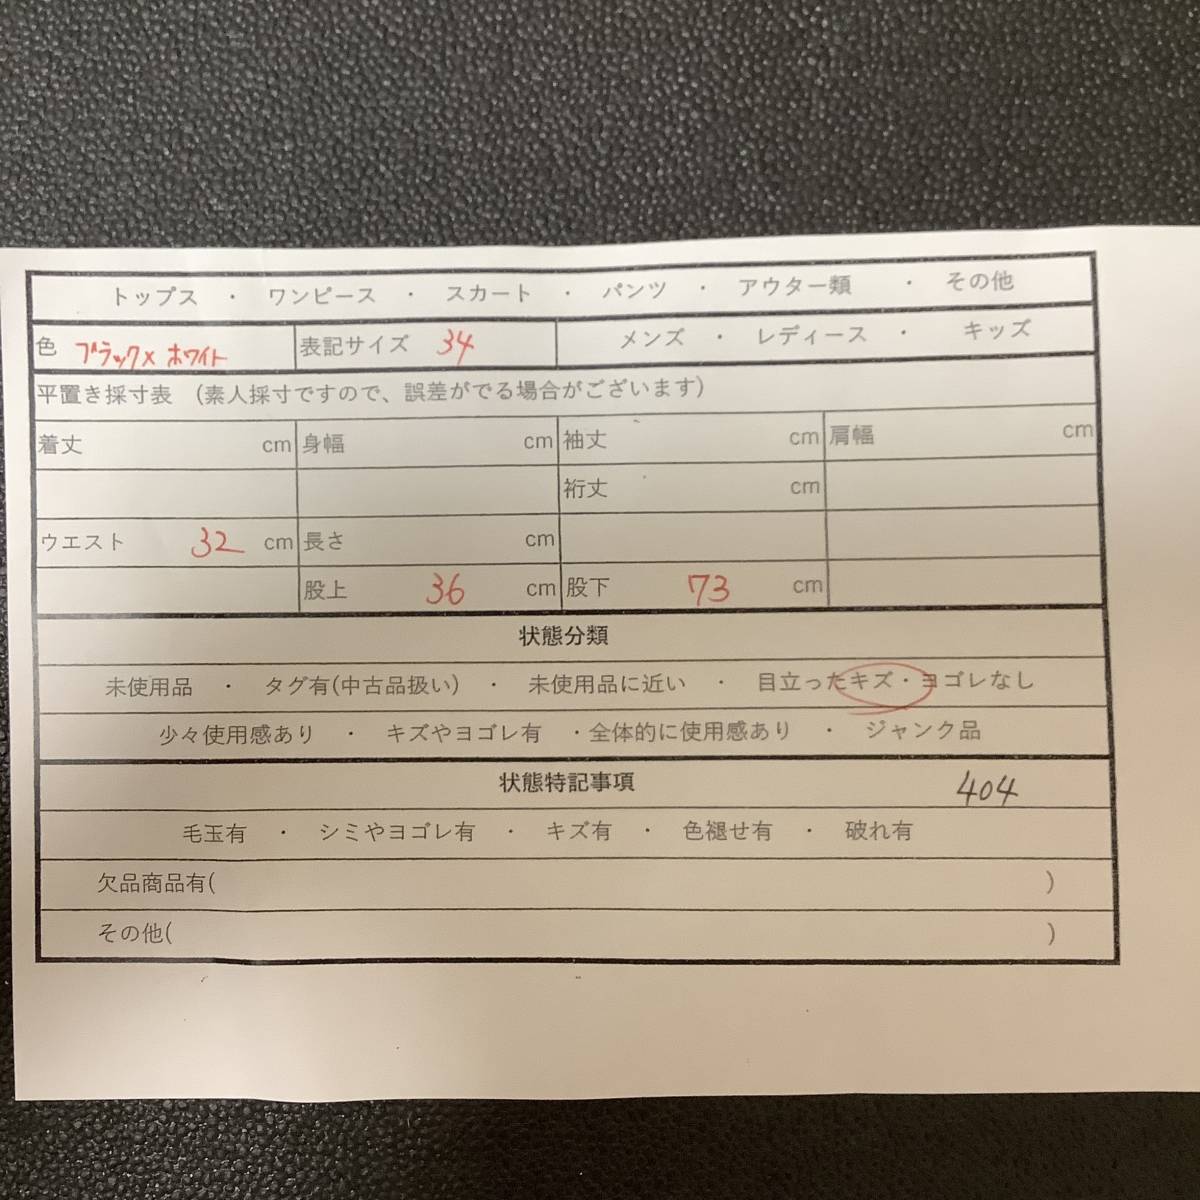 トップス ・ ワンピース ・ スカート ・ パンツ ・ アウター類 ・ その他
色 ブラック×ホワイト 表記サイズ 34 メンズ ・ レディース ・ キッズ
平置き採寸表 (素人採寸ですので、誤差がでる場合がございます)
着丈 cm 身幅 cm 袖丈 cm 肩幅 cm
裄丈 cm
ウエスト 32 cm 長さ cm
股上 36 cm 股下 73 cm
状態分類
未使用品 ・ タグ有(中古品扱い) ・ 未使用品に近い ・ 目立ったキズ・ヨゴレなし
少々使用感あり ・ キズやヨゴレ有 ・全体的に使用感あり ・ ジャンク品
状態特記事項 404
毛玉有 ・ シミやヨゴレ有 ・ キズ有 ・ 色褪せ有 ・ 破れ有
欠品商品有( )
その他( )